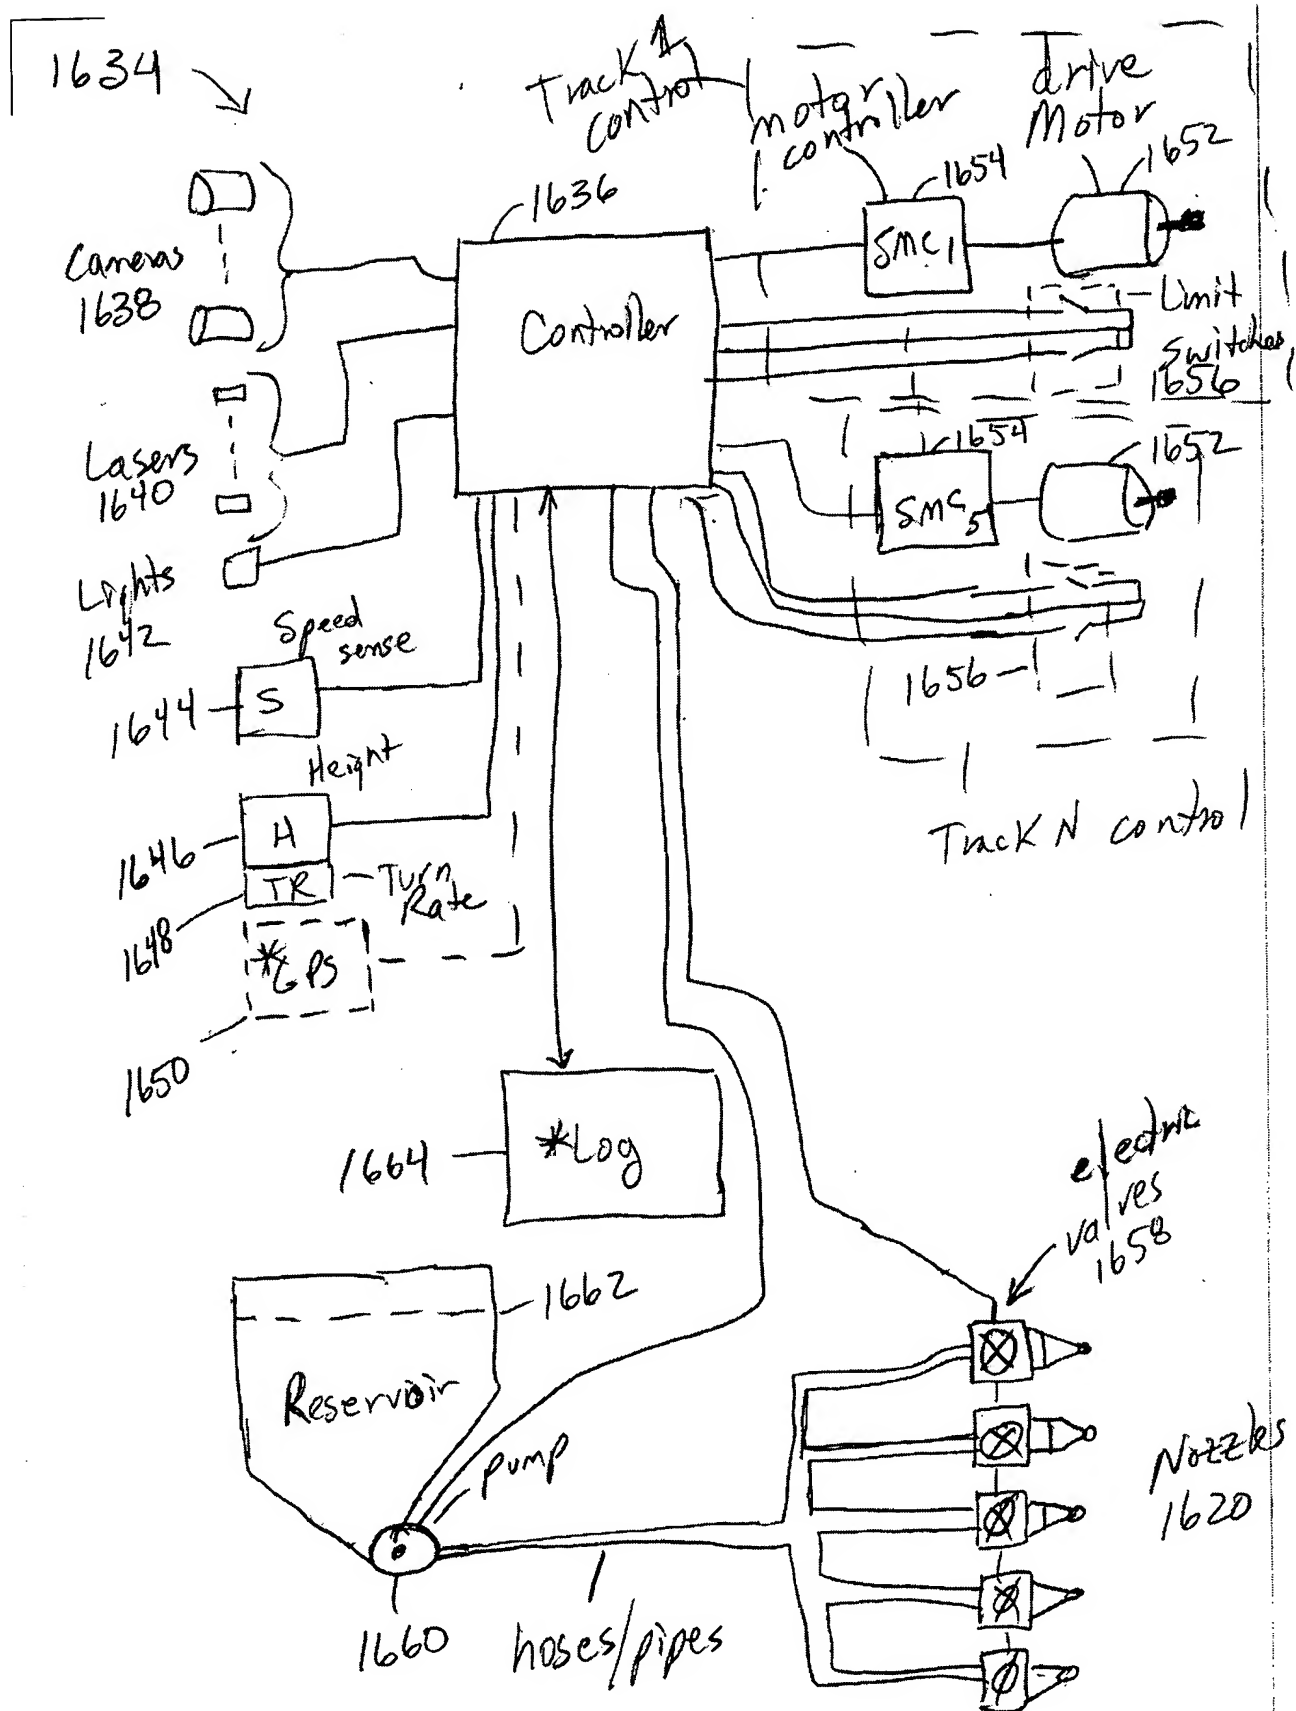 1634
Track 1
control
motor
controller
drive
Motor
1636
1654
1652
Cameras
1638
Controller
SMC1
Limit
Switches
1656
Lasers
1640
1654
1652
SMC5
Lights
1642
Speed
sense
1644
S
1656
Height
1646
H
Track N control
TR
Turn
Rate
1648
*GPS
1650
1664
*Log
electric
valves
1658
1662
Reservoir
pump
Nozzles
1620
1660
hoses/pipes